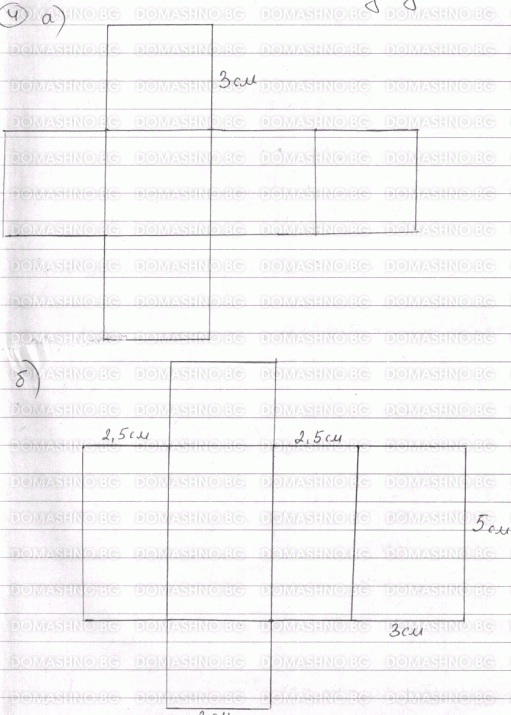 4 а)
3 см
б)
2,5 см 2,5 см
5 см
3 см
DOMASHNO.BG